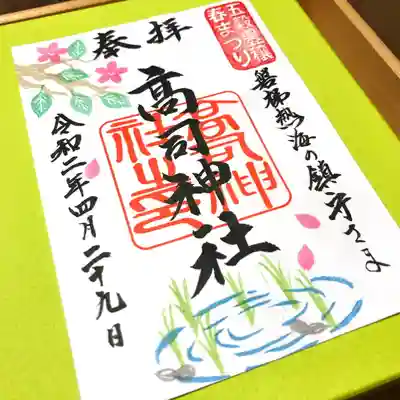 五穀豊穣
春まつり
磐梯熱海の鎮守さま
奉拝
高司神社
高司神社之印
令和二年四月二十九日